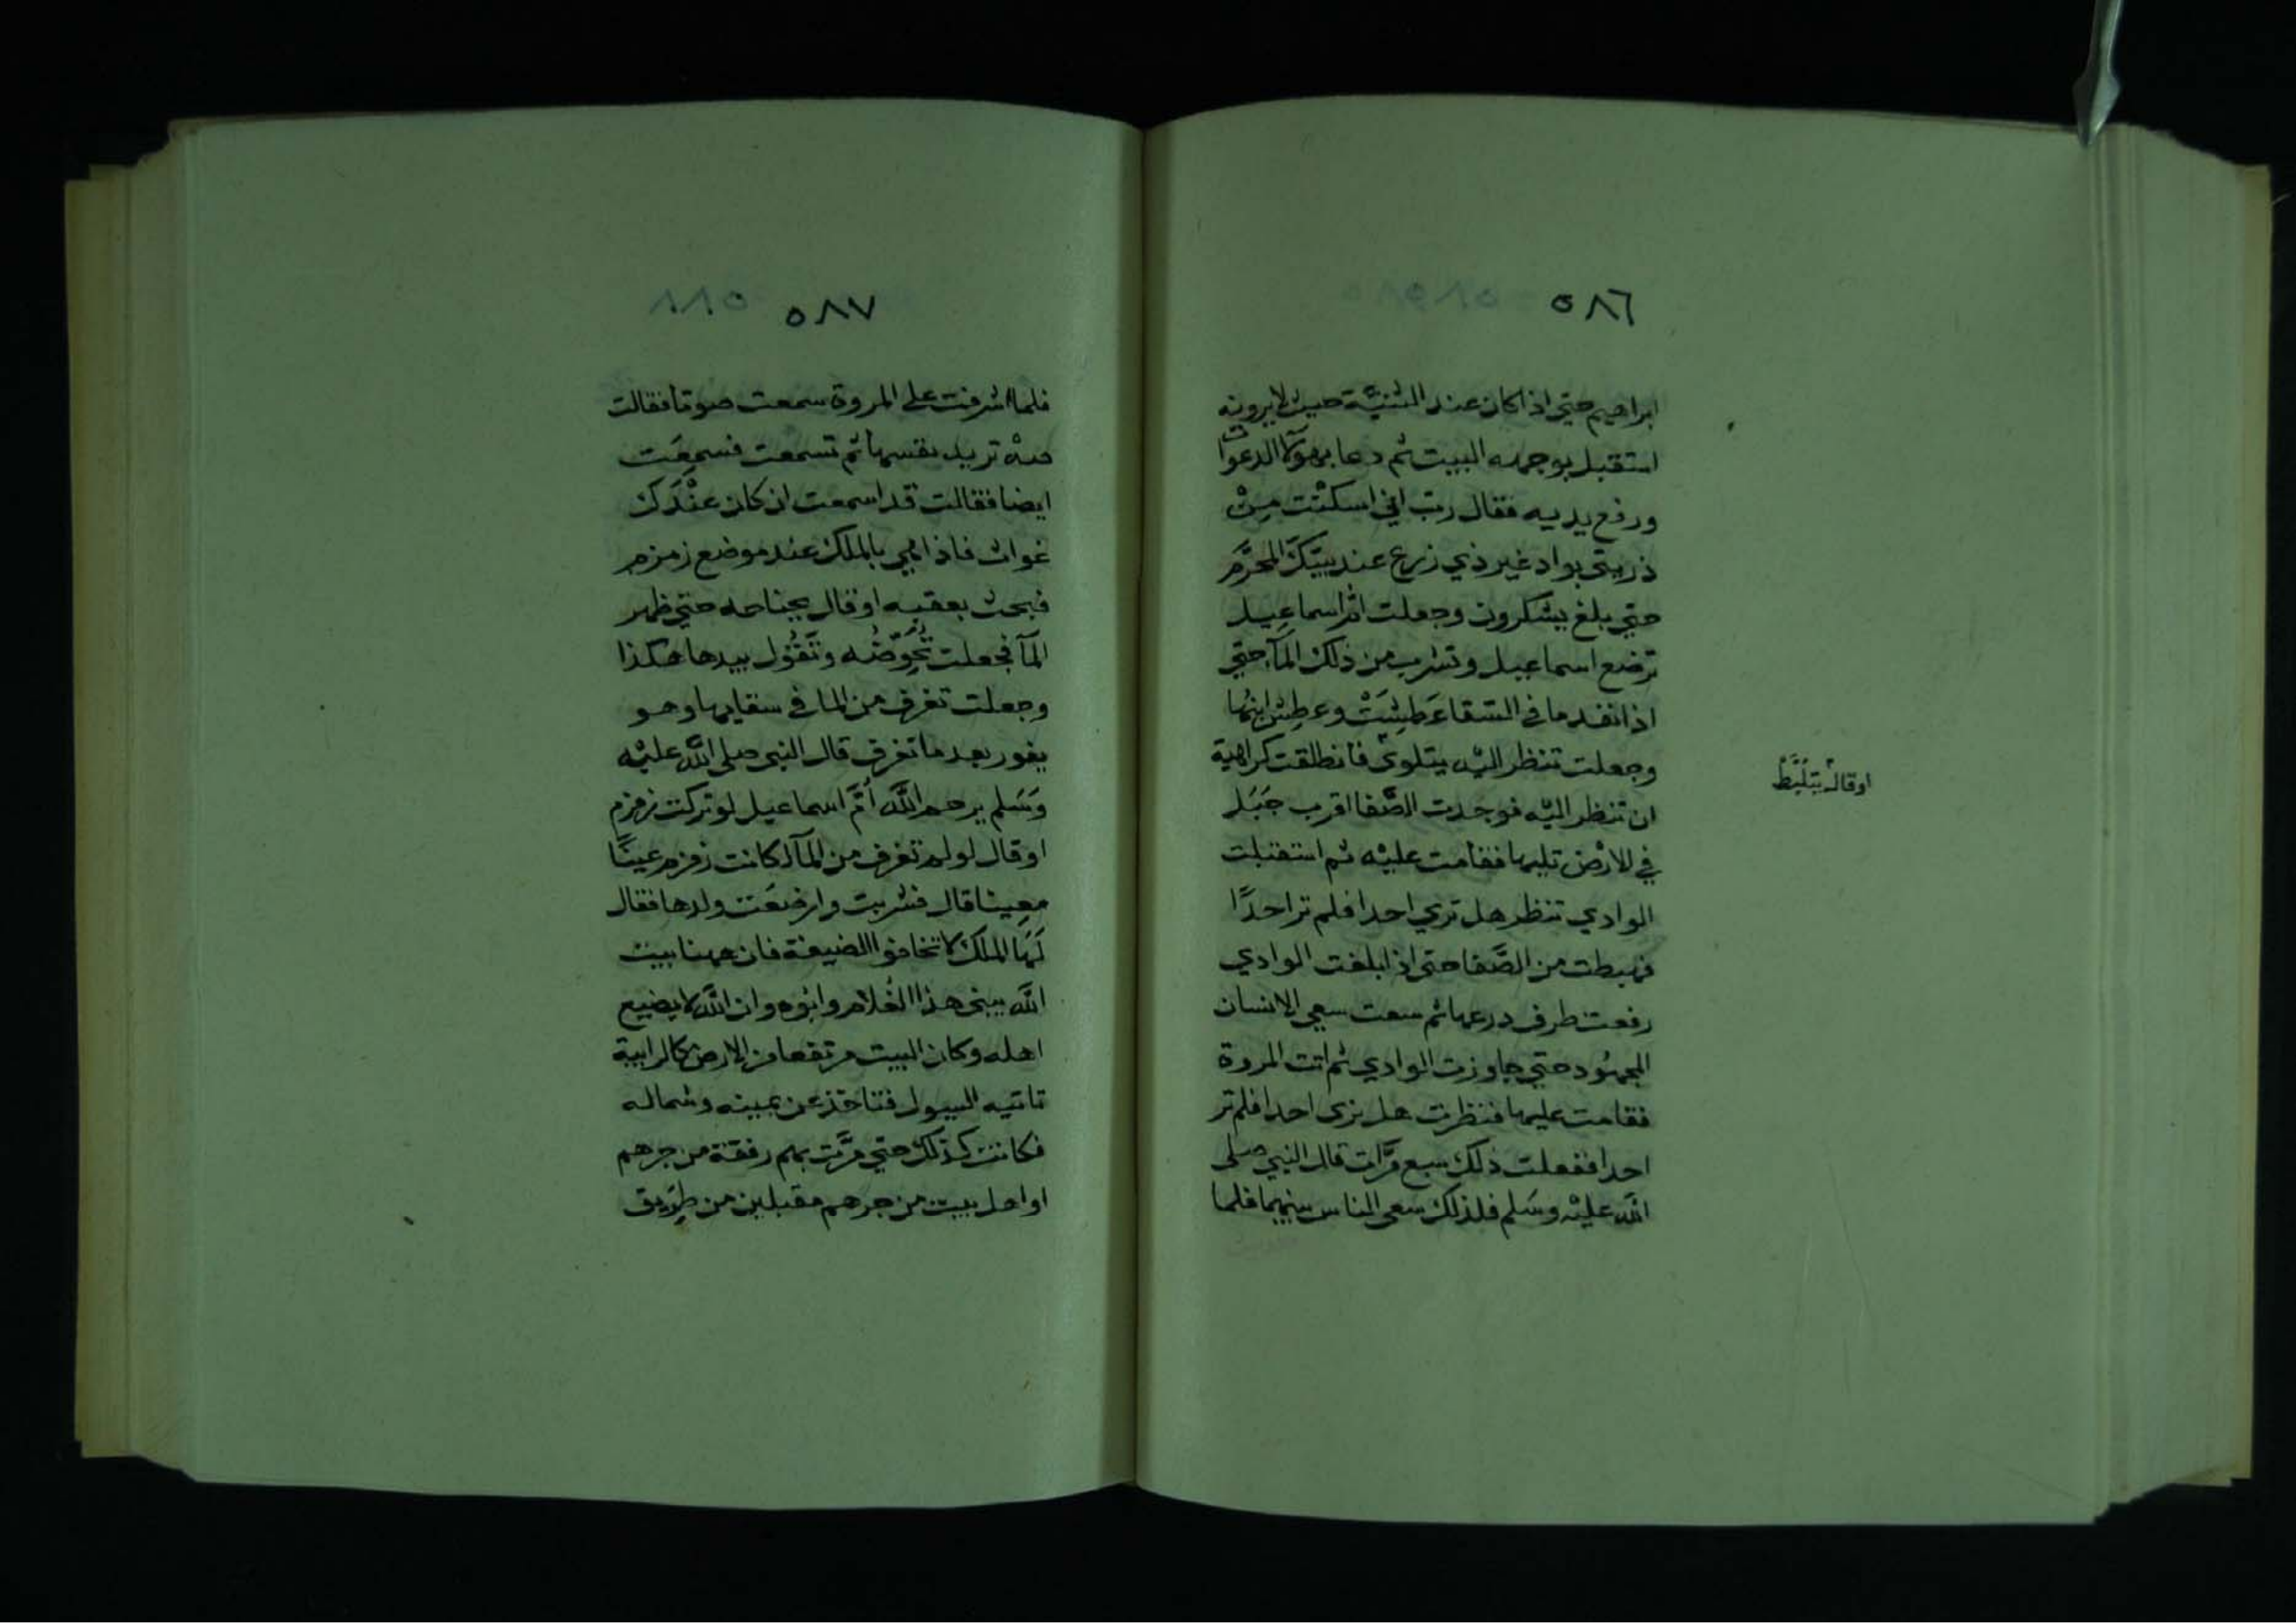 ٥٨٦
ابراهيم حتي اذا كان عند الثنيّة حيث لا يرونه
استقبل بوجهه البيت ثم دعا بهؤلآ الدعوات
ورفع يديه فقال ربّ اني اسكنْت مِنْ
ذريتي بواد غير ذي زرع عند بيتكَ المحرّم
حتي بلغ يشكرون وجعلت امّ اسماعِيل
ترضع اسماعيل وتشرب من ذلك المآ حتي
اذا نفد ما في السّقا عَطِشَتْ وعطِش ابنُها
وجعلت تنظر اليْه يتلوى فانطلقت كراهية
اوقال يتلبّط
ان تنظر اليْه فوجدت الصَّفا اقرب جَبَل
في الارْض تليها فقامت عليْه ثم استقبلت
الوادي تنظر هل تري احدا فلم تر احدًا
فهبطت من الصَّفا حتى اذا بلغت الوادي
رفعت طرف درعها ثم سعت سعي الانسان
المجهُود حتي جاوزت الوادي ثم اتت المروة
فقامت عليها فنظرت هل ترى احدا فلم تر
احدا ففعلت ذلك سبع مرّات قال النبي صلى
اللّه عليْه وسَلم فلذلك سعى الناس بينهما فلما
٥٨٧
٥٨٨
فلما اشرفت على المروة سمعت صوتا فقالت
صهْ تريد نفسها ثم تسمعت فسمِعَت
ايضا فقالت قد اسمعت ان كان عنْدَك
غواث فاذا هي بالملك عند موضع زمزم
فبحث بعقبه او قال بجناحه حتي ظهر
المآ فجعلت تُحَوِّضُه وتَقُول بيدها هكذا
وجعلت تغرف من الما في سقايها وهو
يفور بعد ما تغرف قال النبى صلى اللّه عليْه
وَسَلم يرحم اللّه أمَّ اسماعيل لو تركت زمزم
او قال لو لم تغرف من المآ لكانت زمزم عينًا
معِينا قال فشربت وارضعَت ولدها فقال
لَهَا الملك لا تخافوا الضيعة فان ههنا بيت
اللّه يبنى هذا الغُلام وابُوه وان اللّه لا يضيع
اهله وكان البيت مرتفعا من الارض كالرابية
تاتيه السيول فتاخذ عن يمينه وشماله
فكانت كذلك حتي مرَّت بهم رفقة من جرهم
او اهل بيت من جرهم مقبلين من طَرِيق